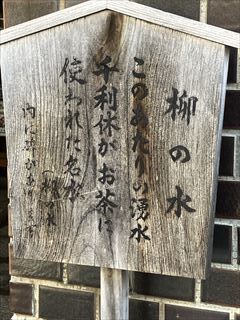 柳の水
このあたりの湧水
千利休がお茶に
使われた名水